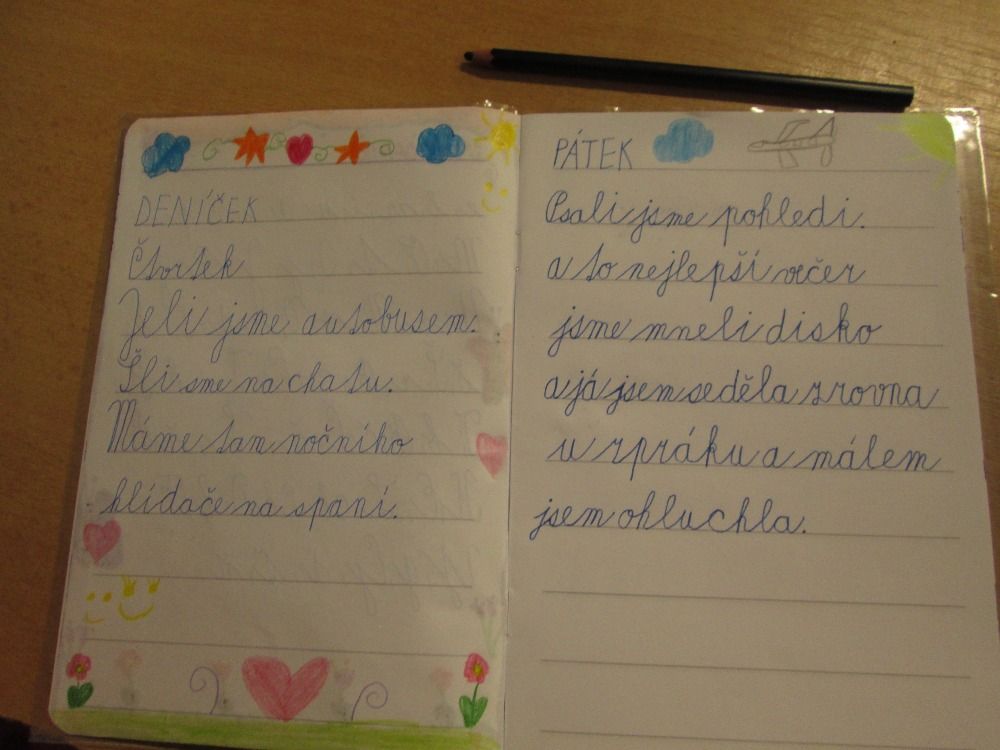 DENÍČEK
Čtvrtek
Jeli jsme autobusem.
Šli sme na chatu.
Máme tam nočního
hlídače na spaní.
PÁTEK
Psali jsme pohledi.
a to nejlepší večer
jsme mneli disko
a já jsem seděla zrovna
u rpráku a málem
jsem ohluchla.